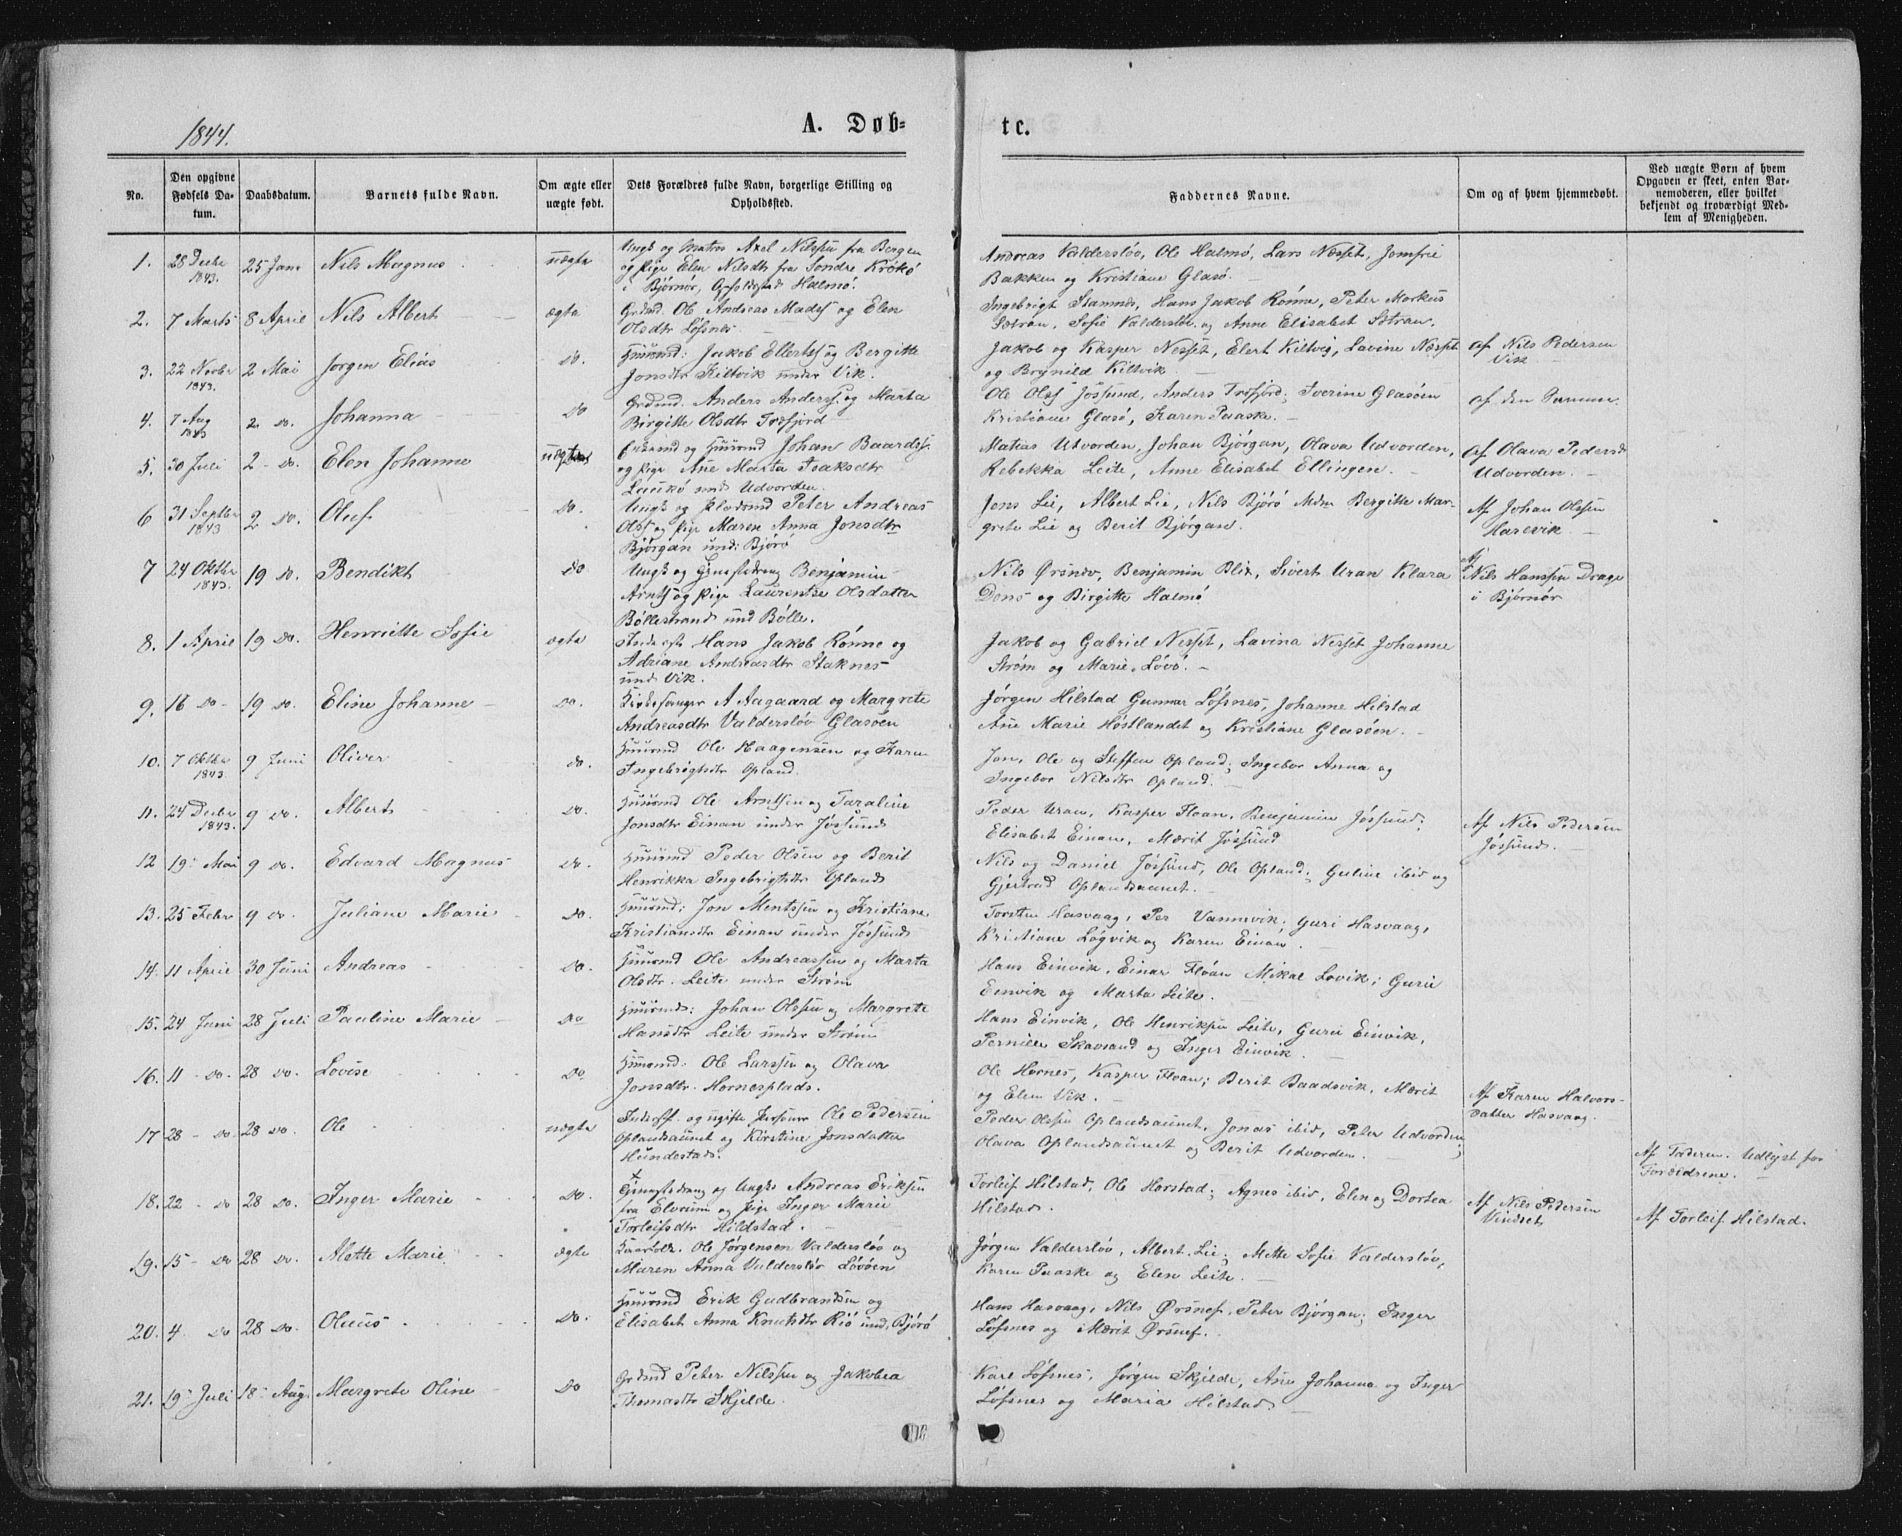 1844.
A. Døb-
te.
No.
Den opgivne Fødsels Da-tum.
Daabsdatum.
Barnets fulde Navn.
Om ægte eller uægte født.
Dets Forældres fulde Navn, borgerlige Stilling og Opholdssted.
Faddernes Navne.
Om og af hvem hjemmedøbt.
Ved uægte Børn af hvem Opgaven er skeet, enten Bar-nemoderen, eller hvilket bekjendt og troværdigt Med-lem af Menigheden.
1. 28 Decbr 1843. 25 Janr Nils Magnus uægte
Ungk og Matros Axel Nilssen fra Bergen
og Pige Elen Nilsdtr fra Søndre Krokø
i Bjørnør, Opholdssted Halmø.
Andreas Valdersløv, Ole Halmø, Lars Nesset, Jomfrue
Bakken og Kristiane Glasø.
2. 7 Marts 8 April Nils Albert ægte
Grdmd Ole Andreas Mads og Elen
Olsdtr Løfsnes
Ingebrigt Stamnes, Hans Jakob Rønne, Peter Markus
Sætran, Sofie Valdersløv og Anne Elisabet Sætran.
3. 22 Novbr 1843. 2 Mai Jørgen Elias do.
Huusmd: Jakob Ellerts og Bergitte
Jonsdtr Kiltvik under Vik.
Jakob og Kasper Nesset, Elert Kiltvig, Lavine Nesset
og Brynild Kiltvik
af Nils Pedersen
Vik
4. 7 Aug 1843 2 do. Johanna do
Grdmd: Anders Anders og Marta
Birgitte Olsdtr Træfjord
Ole Olss Jøssund, Anders Træfjord, Iverine Glasøen
Kristiane Glasø, Karen Paaske.
af den Samme.
5. 30 Juli 2 do. Elen Johanna uægte
og Huusmd Johan Baards
og Pige Ane Marta Isaksdtr
Laukø und Udvorden.
Matias Utvorden, Johan Bjørgan, Olava Udvorden,
Rebekka Leite, Anne Elisabet Ellingen.
af Olava Pedersd
Udvorden.
6 31 Septbr 1843 2 do. Oluf do.
Ungk og Peter Andreas
Ols og Pige Maren Anna Jonsdtr
Bjørgan und: Bjørø
Jens Lie, Albert Lie, Nils Bjørø Bergitte Mar-
grete Lie og Berit Bjørgan.
Af Johan Olssen
Harevik.
7 24 Oktbr 1843. 19 do. Bendikt do
Ungk og Benjamin
Arnts og Pige Laurentse Olsdatter
Bøllestrand und Bølle.
Nils Ørsnes, Benjamin Blix, Sivert Uran Klara
Dons og Birgitte Halmø
Af
Nils Hanssen Drage
i Bjørnør
8. 1 April 19 do. Henriette Sofie ægte
Inderst Hans Jakob Rønne og
Adriane Andreasdtr Staknes
und Vik.
Jakob og Gabriel Nesset, Lavina Nesset Johanne
Strøm og Marie Løvø.
9. 16 do 19 do. Eline Johanne do.
Kirkesanger A Aagaard og Margrete
Andreasdtr Valdersløv Glasøen
Jørgen Hilstad Gunnar Løfsnes, Johanne Hilstad
Ane Marie Høstlandet og Kristiane Glasøen.
10. 7 Oktbr 1843. 9 Juni Oliver do.
Huusmd Ole Haagensen og Karen
Ingebrigtsdtr Opland.
Jon, Ole og Steffen Opland; Ingebor Anna og
Ingebor Nilsdtr Opland.
11. 24 Decbr 1843. 9 do. Albert do.
Huusmd Ole Arntsen og Taraline
Jonsdtr Einan under Jøssund
Peder Uran, Kasper Floan, Benjamin Jøssund;
Elisabet Einan, Mærit Jøssund
Af Nils Pedersen
Jøssund.
12 19 Mai 9 do. Edvard Magnus do.
Huusmd Peder Olsen og Berit
Henrikka Ingebrigtsdtr Opland
Nils og Daniel Jøssund, Ole Opland; Guline ibid og
Gjertrud Oplandsaunet.
13. 25 Febr 9 do. Juliane Marie do.
Huusmd: Jon Mentssen og Kristiane
Kristiansdtr Einan under Jøssund
Torsten Hasvaag, Per Vannevik; Guri Hasvaag,
Kristiane Løgvik og Karen Einan.
14. 11 April 30 Juni Andreas do.
Huusmd Ole Andreassen og Marta
Olsdtr. Leite under Strøm
Hans Einvik, Einar Floan Mikal Lovik; Guri
Einvik og Marta Leite.
15. 24 Juni 28 Juli Pauline Marie do
Huusmd: Johan Olssen og Margrete
Hansdtr Leite under Strøm
Hans Einvik, Ole Henriksen Leite, Guri Einvik,
Pernille Skavsand og Inger Einvik.
16. 11 do. 28 do. Lovise do.
Huusmd: Ole Larssen og Olava
Jonsdtr. Hornesplads.
Ole Hornes, Kasper Floan; Berit Baadsvik, Mærit
og Elen Vik.
17 28 do 28 do. Ole uægte
Inderst. og ugifte Person Ole Pedersen
Oplandsaunet og Kirstine Jonsdatter
Hundestad.
Peder Olsen Oplandsaunet, Jonas ibid, Peter Udvorden;
Olava Oplandsaunet og Berit Udvorden.
Af Karen Halvors-
datter Hasvaag.
Af Faderen. Udlyst for
Forældrene.
18. 22 do 28 do. Inger Marie do.
og Ungk Andreas Eriksen
fra Elverum og Pige Inger Marie
Torleifsdtr Hildstad.
Torleif Hilstad, Ole Horstad; Agnes ibid, Elen og Dortea
Hilstad.
Af Nils Pedersen
Vindset
Af Torleif Hilstad.
19. 15 do 28 do. Alette Marie ægte
Ole Jørgensen Valdersløv og
Maren Anna Valdersløv Løvøen
Jørgen Valdersløv, Albert Lie; Mette Sofie Valdersløv,
Karen Paaske og Elen Leite.
20. 4 do 28 do. Oluus do.
Huusmd Erik Gudbrandsen og
Elisabet Anna Knutsdtr Riø und, Bjørø
Hans Hasvaag, Nils Ørsnes, Peter Bjørgan; Inger
Løfsnes og Mærit Ørsnes.
21. 19 Juli 18 Aug. Margrete Oline do
Grdmd Peter Nilssen og Jakobea
Thomasdtr Skjelde.
Karl Løfsnes, Jørgen Skjelde, Ane Johanna og Inger
Løfsnes og Maria Hilstad